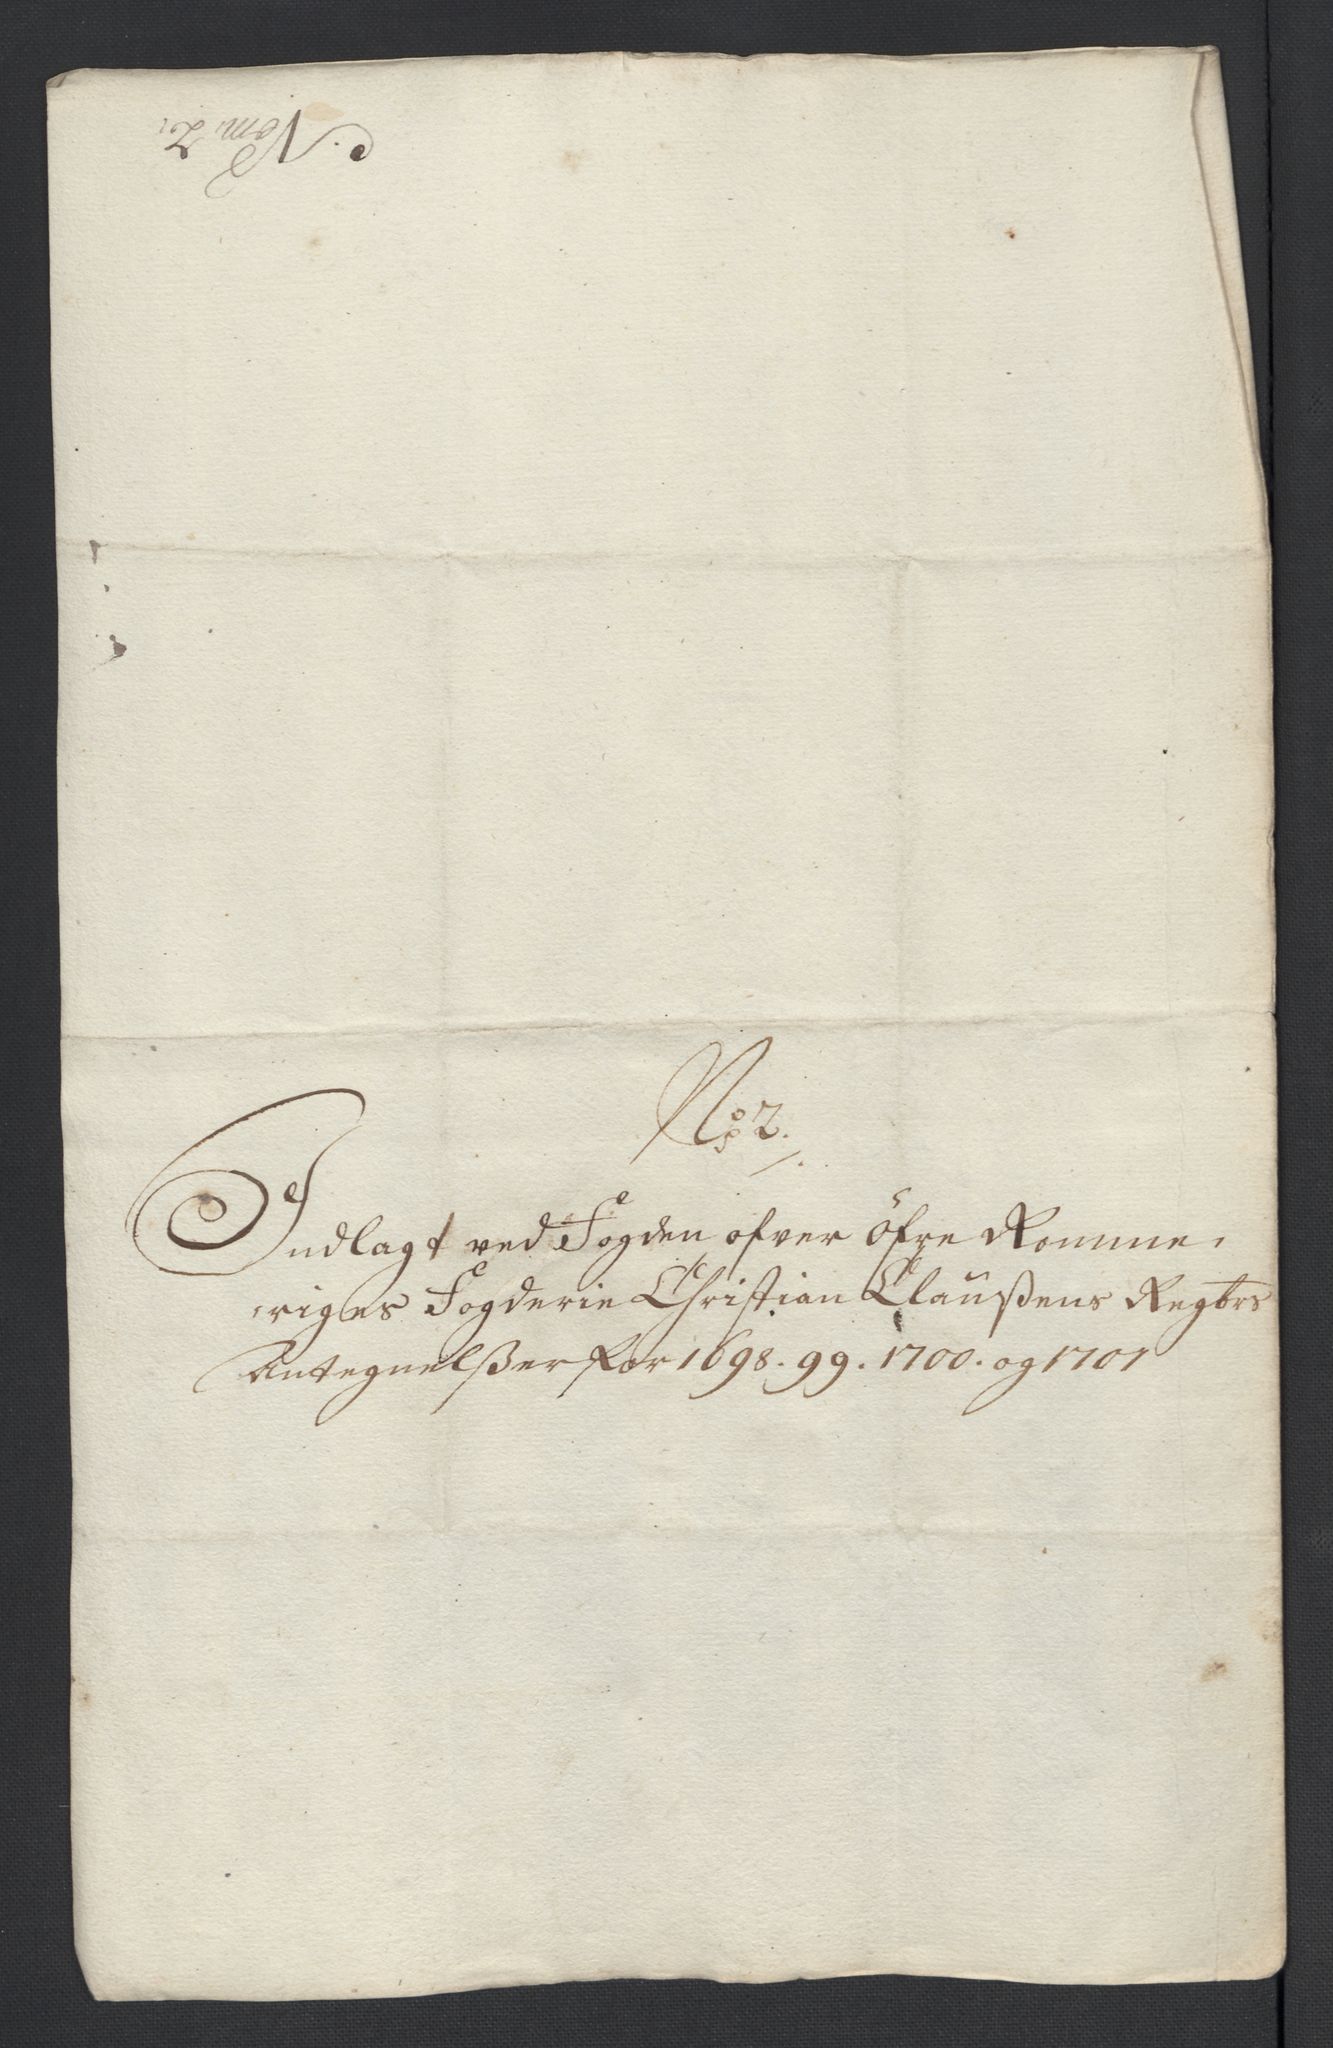 Nom: 2.
No: 2.
Indlagt ved Fogden ofver Öfre Romme,
riges Fogderie Christian Claußens Regbrs
Antegnelßer for 1698. 99. 1700. og 1701